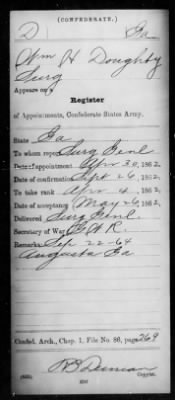 (CONFEDERATE.)
D Ga
Wm H Doughty
Surg
Appears on a
Register
of Appointments, Confederate States Army.
State Ga
To whom report Surg Genl
Date of appointment Apr 30, 1862,
Date of confirmation Sept 26, 1862,
To take rank Apr 4, 1862,
Date of acceptance May 26, 1862,
Delivered Surg Genl.
Secretary of War G. W. R.
Remarks: Sep 22-64
Augusta Ga
Confed. Arch., Chap. 1, File No. 86, page 269
Copyist.